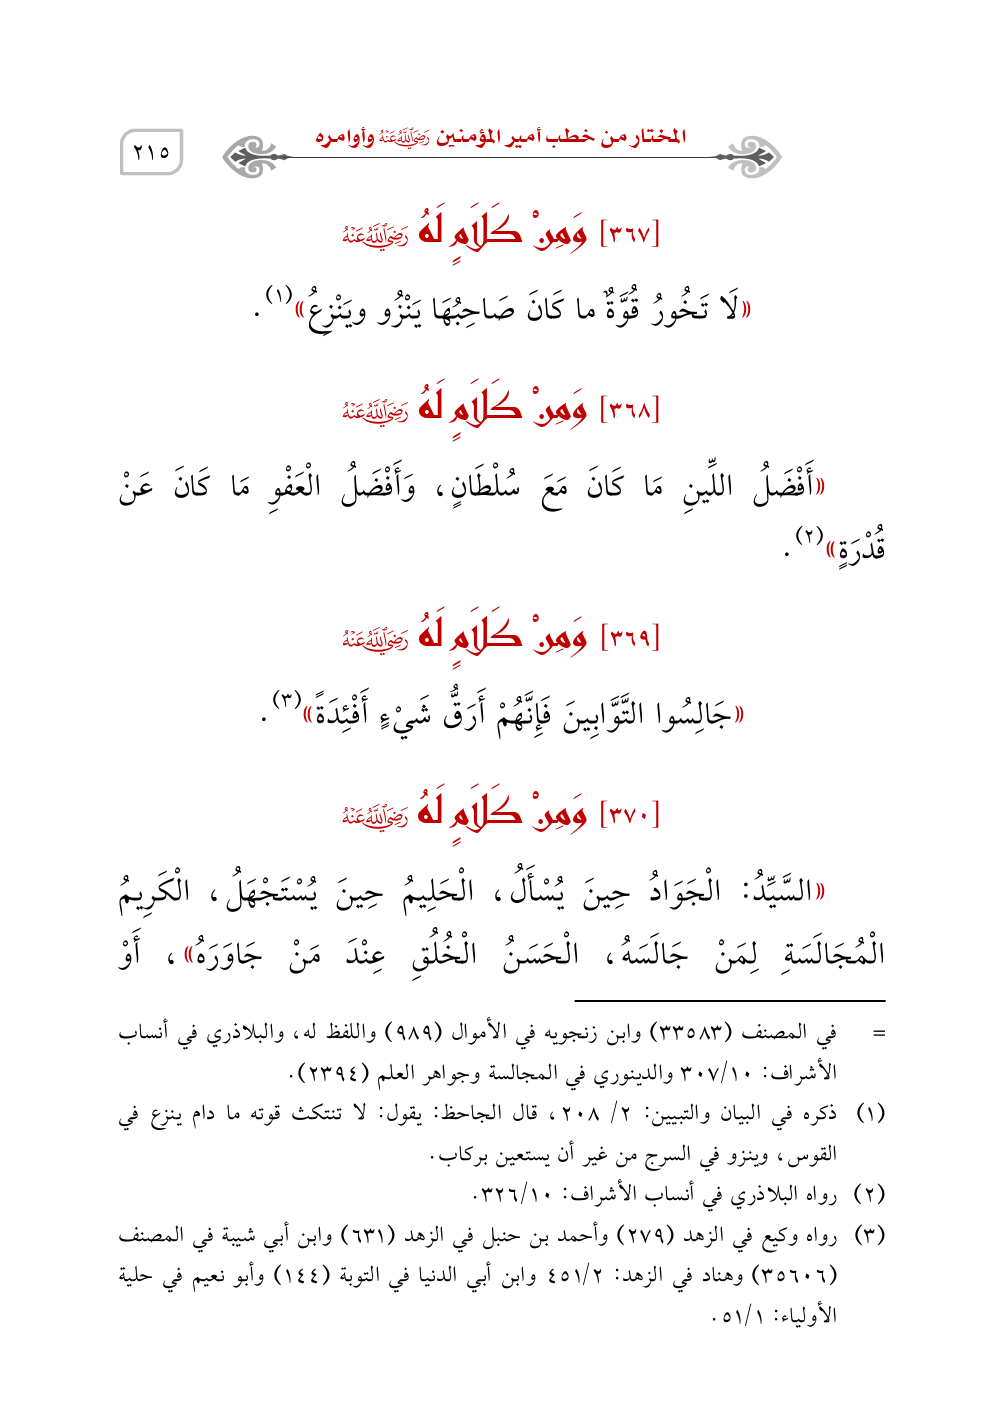 المختار من خطب أمير المؤمنين رَضِيَ اللَّهُ عَنْهُ وأوامره
٢١٥
[٣٦٧] وَمِنْ كَلَامٍ لَهُ رَضِيَ اللَّهُ عَنْهُ
«لَا تَخُورُ قُوَّةٌ ما كَانَ صَاحِبُهَا يَنْزُو ويَنْزِعُ»(١).
[٣٦٨] وَمِنْ كَلَامٍ لَهُ رَضِيَ اللَّهُ عَنْهُ
«أَفْضَلُ اللِّينِ مَا كَانَ مَعَ سُلْطَانٍ، وَأَفْضَلُ الْعَفْوِ مَا كَانَ عَنْ
قُدْرَةٍ»(٢).
[٣٦٩] وَمِنْ كَلَامٍ لَهُ رَضِيَ اللَّهُ عَنْهُ
«جَالِسُوا التَّوَّابِينَ فَإِنَّهُمْ أَرَقُّ شَيْءٍ أَفْئِدَةً»(٣).
[٣٧٠] وَمِنْ كَلَامٍ لَهُ رَضِيَ اللَّهُ عَنْهُ
«السَّيِّدُ: الْجَوَادُ حِينَ يُسْأَلُ، الْحَلِيمُ حِينَ يُسْتَجْهَلُ، الْكَرِيمُ
الْمُجَالَسَةِ لِمَنْ جَالَسَهُ، الْحَسَنُ الْخُلُقِ عِنْدَ مَنْ جَاوَرَهُ»، أَوْ
= في المصنف (٣٣٥٨٣) وابن زنجويه في الأموال (٩٨٩) واللفظ له، والبلاذري في أنساب
الأشراف: ٣٠٧/١٠ والدينوري في المجالسة وجواهر العلم (٢٣٩٤).
(١) ذكره في البيان والتبيين: ٢/ ٢٠٨، قال الجاحظ: يقول: لا تنتكث قوته ما دام ينزع في
القوس، وينزو في السرج من غير أن يستعين بركاب.
(٢) رواه البلاذري في أنساب الأشراف: ٣٢٦/١٠.
(٣) رواه وكيع في الزهد (٢٧٩) وأحمد بن حنبل في الزهد (٦٣١) وابن أبي شيبة في المصنف
(٣٥٦٠٦) وهناد في الزهد: ٤٥١/٢ وابن أبي الدنيا في التوبة (١٤٤) وأبو نعيم في حلية
الأولياء: ٥١/١.